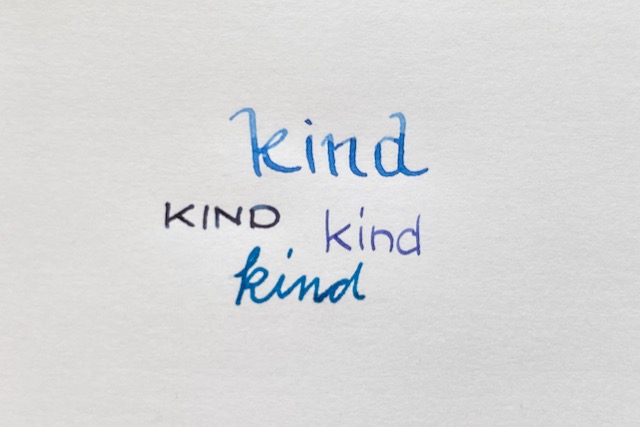 kind
KIND kind
kind